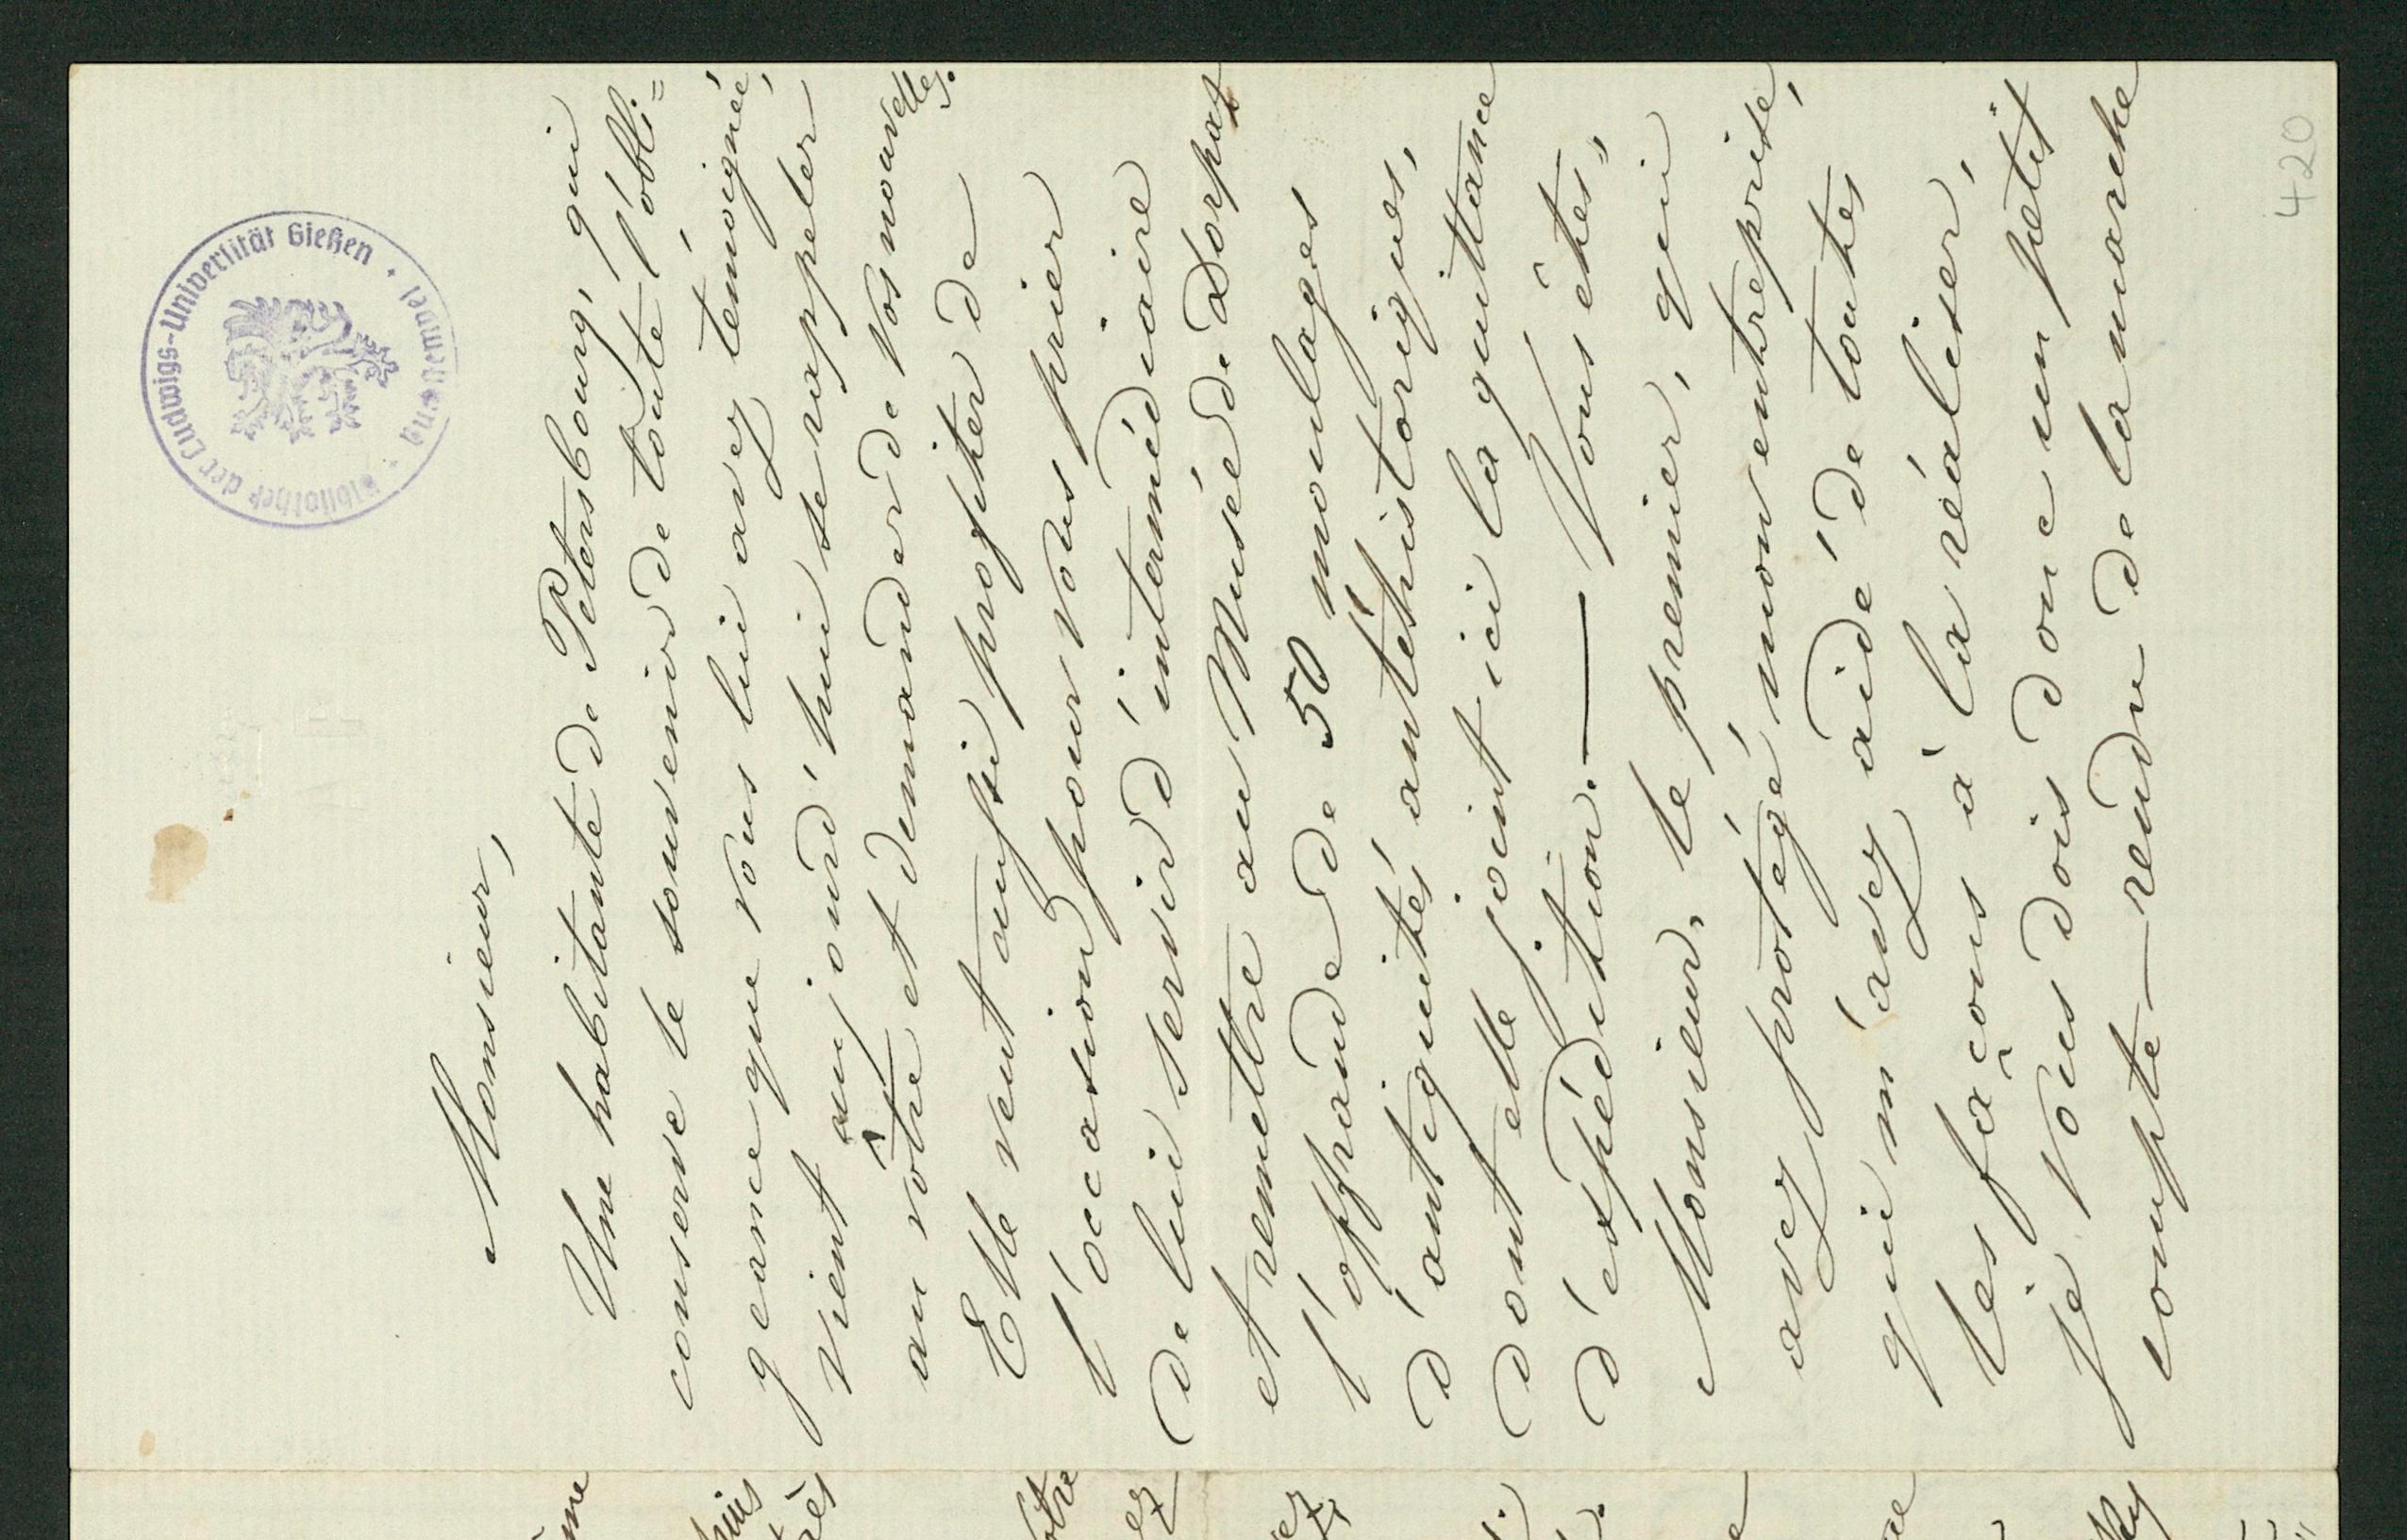 Monsieur,
Une habitante de Petersbourg, qui
conserve le souvenir de toute l'obli=
geance que vous lui avez témoignée,
vient aujourd'hui se rappeler
au vôtre et demander de vos nouvelles.
Elle veut aussi profiter de
l'occasion pour vous prier
de lui servir d'intermédiaire
et remettre au Musée de Dorpat
l'offrande de 50 moulages
d'antiquités antéhistoriques,
dont elle joint ici la quittance
d'expédition. — Vous êtes,
Monsieur, le premier, qui
avez protégé mon entreprise,
qui m'avez aidé de toutes
les façons à la réaliser,
je vous dois donc un petit
compte-rendu de la marche
420
Bibliothek der Ludwigs-Universität Gießen